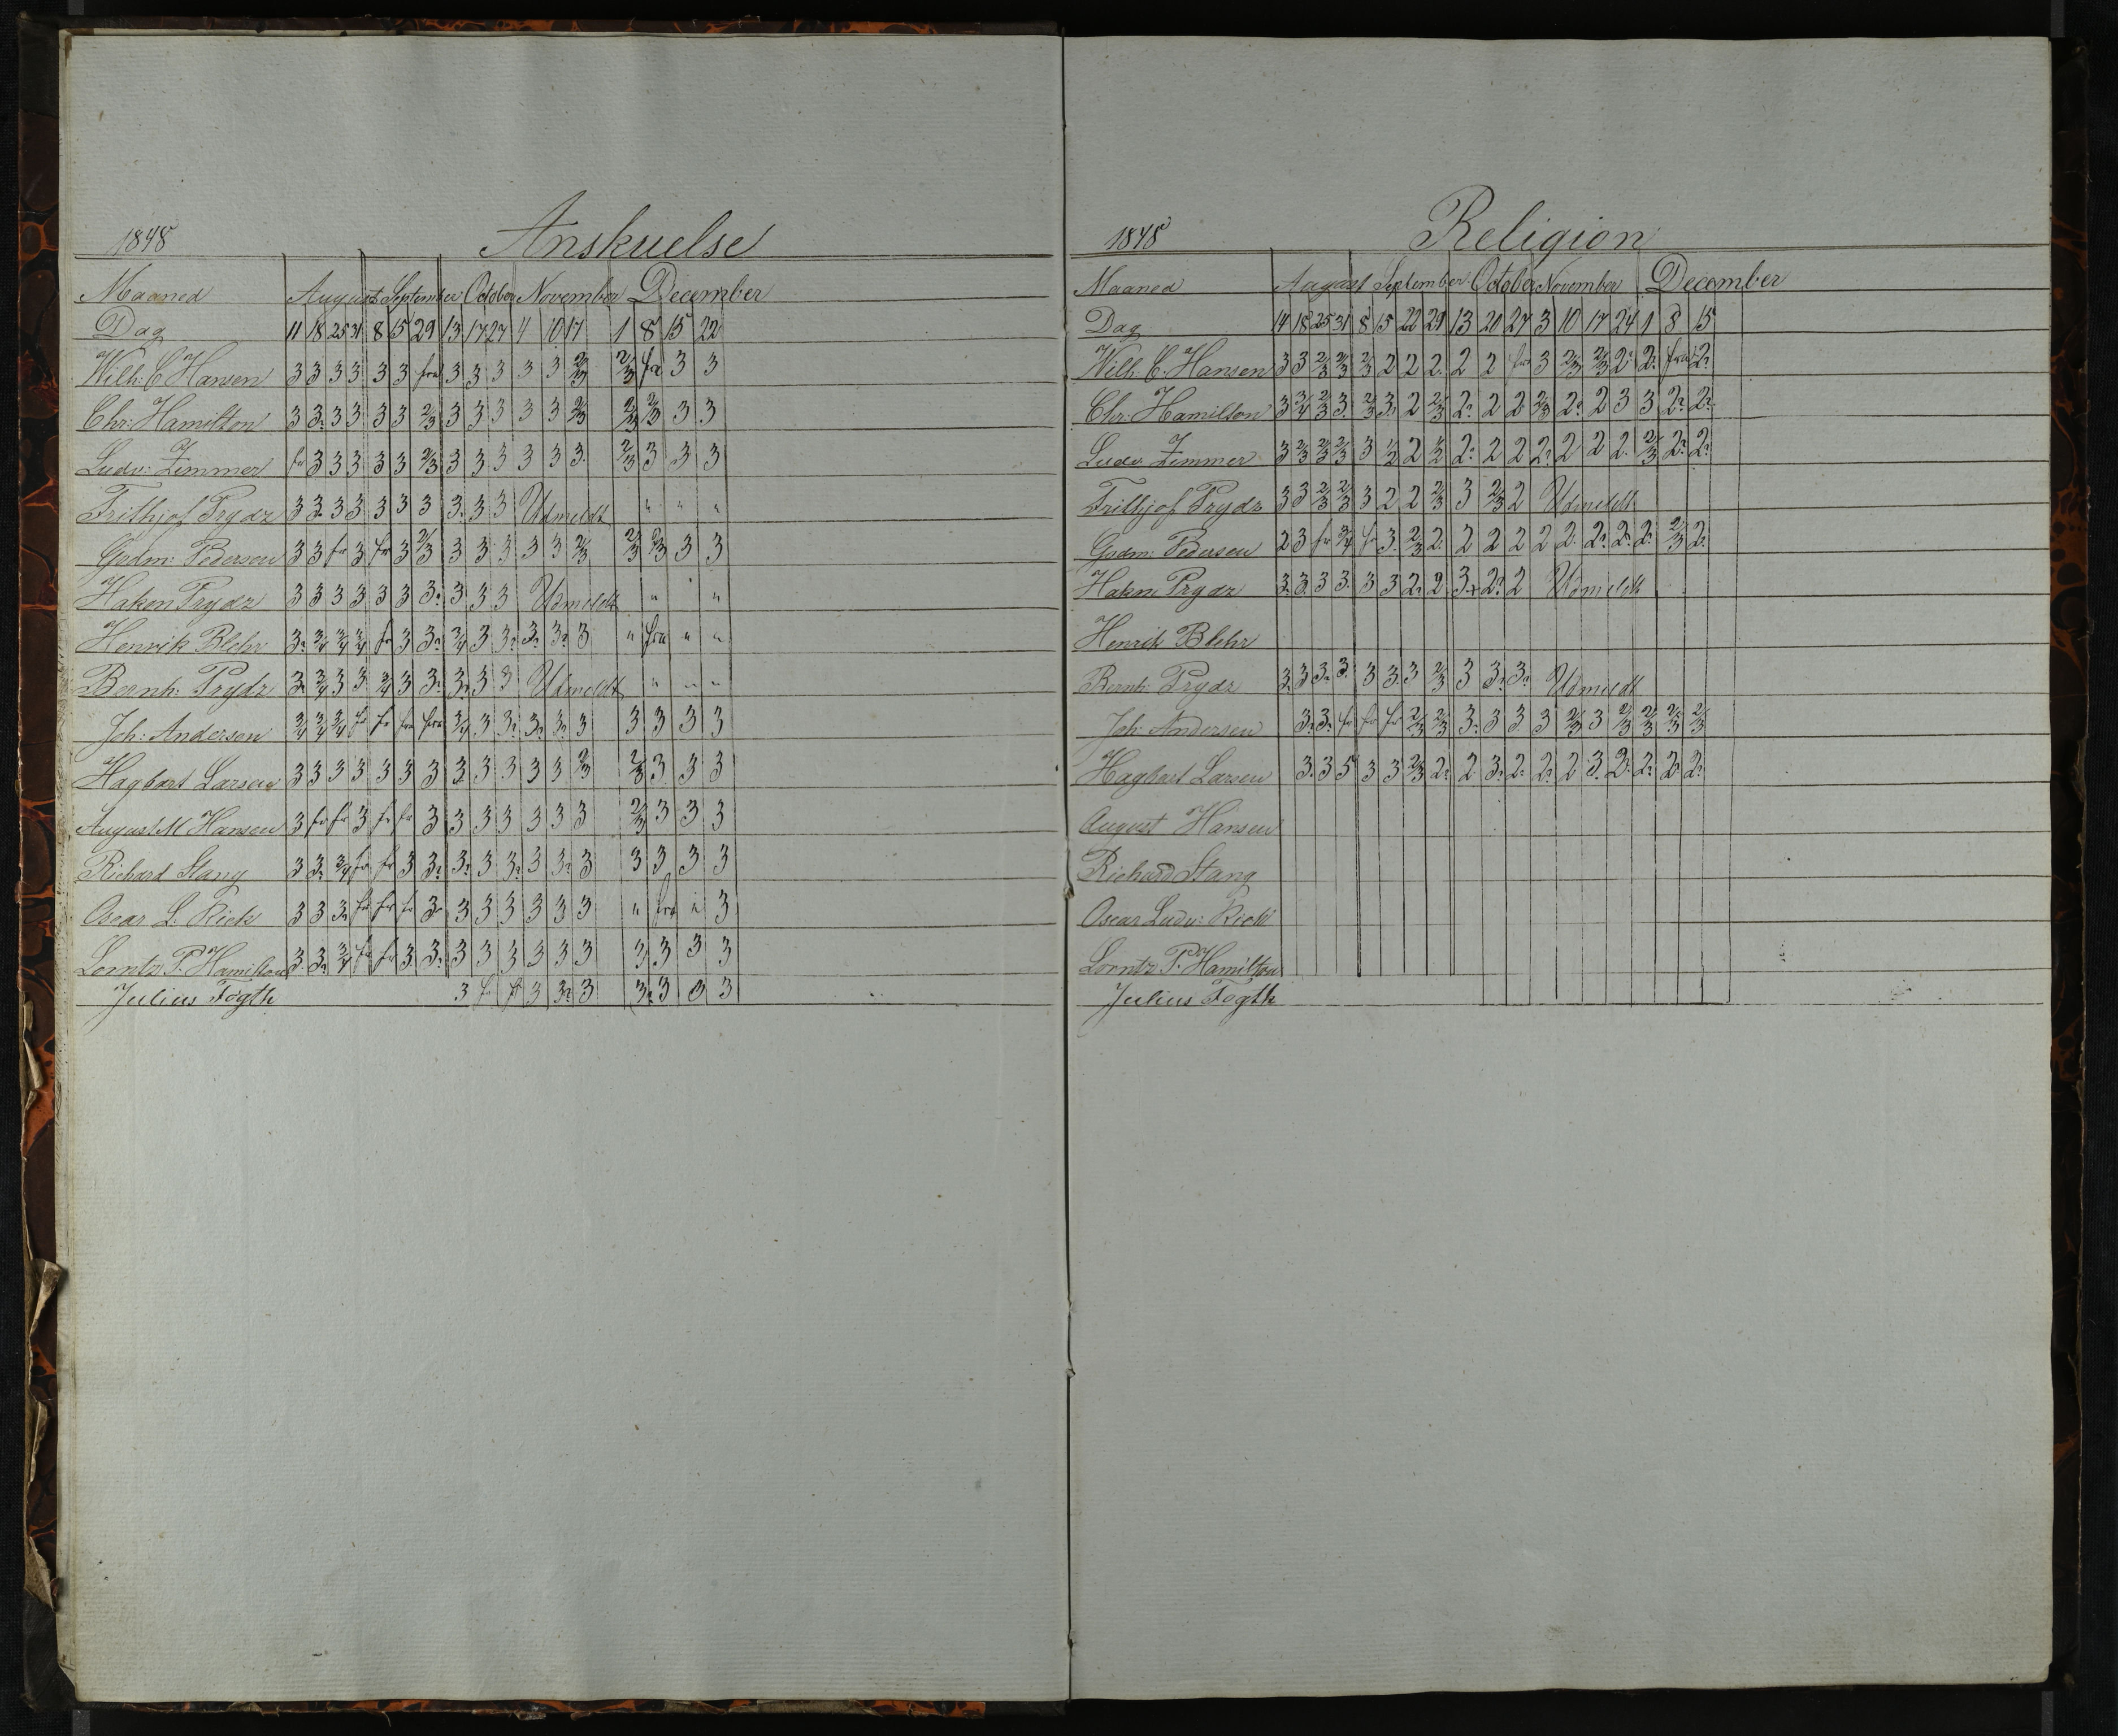 1848 Anskuelse
Maaned August September October November December
Dag 11 18 25 31 8 15 29 13 17 27 4 10 17 1 8 15 22
Wilh: C Hansen 3 3 3 3 3 3 fra 3 3 3 3 3 2/3 2/3 fr 3 3
Chr: Hamilton 3 3. 3 3 3 3 2/3 3 3 3 3 3 2/3 2/3 2/3 3 3
Ludv: Zimmer fr 3 3 3 3 3 2/3 3 3 3 3 3 3 2/3 3 3 3
Frithjof Prydz 3 3 3 3 3 3 3 3 3 3 Udmeldt " " "
Gudm: Pedersen 3 3 fr 3 fr 3 2/3 3 3 3 3 3 2/3 2/3 2/3 3 3
Haken Prydz 3 3 3 3 3 3 3. 3 3 3 Udmeldt " " "
Henrik Blehr 3. 3/4 3/4 3/4 fr 3 3. 3/4 3 3. 3. 3. 3 " fra " "
Bernh: Prydz 3. 3/4 3 3 3/4 3 3. 3. 3 3 Udmeldt " " "
Joh: Andersen 3/4 3/4 3/4 fr fr fra fra 3/4 3 3. 3. 3. 3 3 3 3 3
Hagbart Larsen 3 3 3 3 3 3 3 3 3 3 3 3 2/3 2/3 3 3 3
August M Hansen 3 fr fr 3 fr fr 3 3 3 3 3 3 3 2/3 3 3 3
Richard Stang 3 3. 3/4 fr fr 3 3. 3. 3 3. 3 3. 3 3 3 3 3
Oscar L. Rick 3 3 3. fr fr fr 3. 3 3 3 3 3 3 " fra " 3
Lorntz P. Hamilton 3. 3. 3/4 fr fr 3 3. 3 3 3 3 3 3 3 3 3 3
Julius Fogth 3 fr fr 3 3. 3 3. 3 3 3
1848 Religion
Maaned August September October November December
Dag 14 18 25 31 8 15 22 29 13 20 27 3 10 17 24 1 8 15
Wilh: C. Hansen 3 3 2/3 2/3 2/3 2 2 2. 2 2 fra 3 2/3 2/3 2. 2. fra 2.
Chr: Hamilton 3 3/4 2/3 3. 2/3 3. 2 2/3 2. 2 2 2/3 2. 2 3 3 2. 2.
Ludv. Zimmer 3 2/3 2/3 2/3 3 1/2 2 1/2 2. 2 2 2. 2 2 2. 2/3 2. 2.
Frithjof Prydz 3 3 2/3 2/3 3 2 2 2/3 3 2/3 2 Udmeldt
Gudm: Pedersen 2 3 fr 3/4 fr 3. 2/3 2. 2 2 2 2 2. 2. 2. 2. 2/3 2.
Haken Prydz 3. 3 3 3. 3 3 2. 2 3. 2. 2 Udmeldt
Henrik Blehr
Bernh: Prydz 3. 3 3. 3. 3 3. 3 2/3 3 3. 3. Udmeldt
Joh: Andersen 3. 3. fr fr fr 2/3 2/3 3. 3 3 3 2/3 3 2/3 2/3 2/3 2/3
Hagbart Larsen 3. 3 5 3 3 2/3 2. 2. 3. 2. 2. 2 3. 2. 2. 2. 2.
August Hansen
Richard Stang
Oscar Ludv: Rick
Lorntz P. Hamilton
Julius Fogth